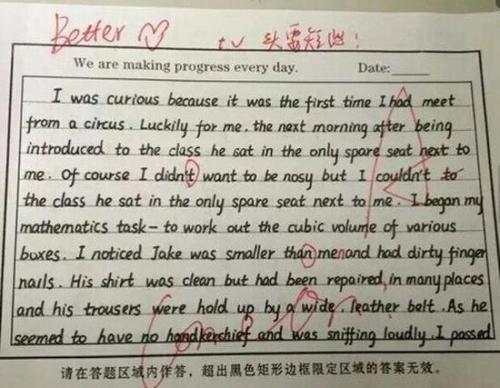 Better ♡ tv 头要短些!
We are making progress every day. Date:_____
I was curious because it was the first time I had meet
from a circus. Luckily for me, the next morning after being
introduced to the class he sat in the only spare seat next to
me. Of course I didn't want to be nosy but I couldn't to
the class he sat in the only spare seat next to me. I began my
mathematics task- to work out the cubic volume of various
boxes. I noticed Jake was smaller than menand had dirty finger
nails. His shirt was clean but had been repaired, in many places
and his trousers were hold up by a wide, leather belt. As he
seemed to have no handkerchief and was sniffing loudly. I passed
请在答题区域内作答,超出黑色矩形边框限定区域的答案无效。